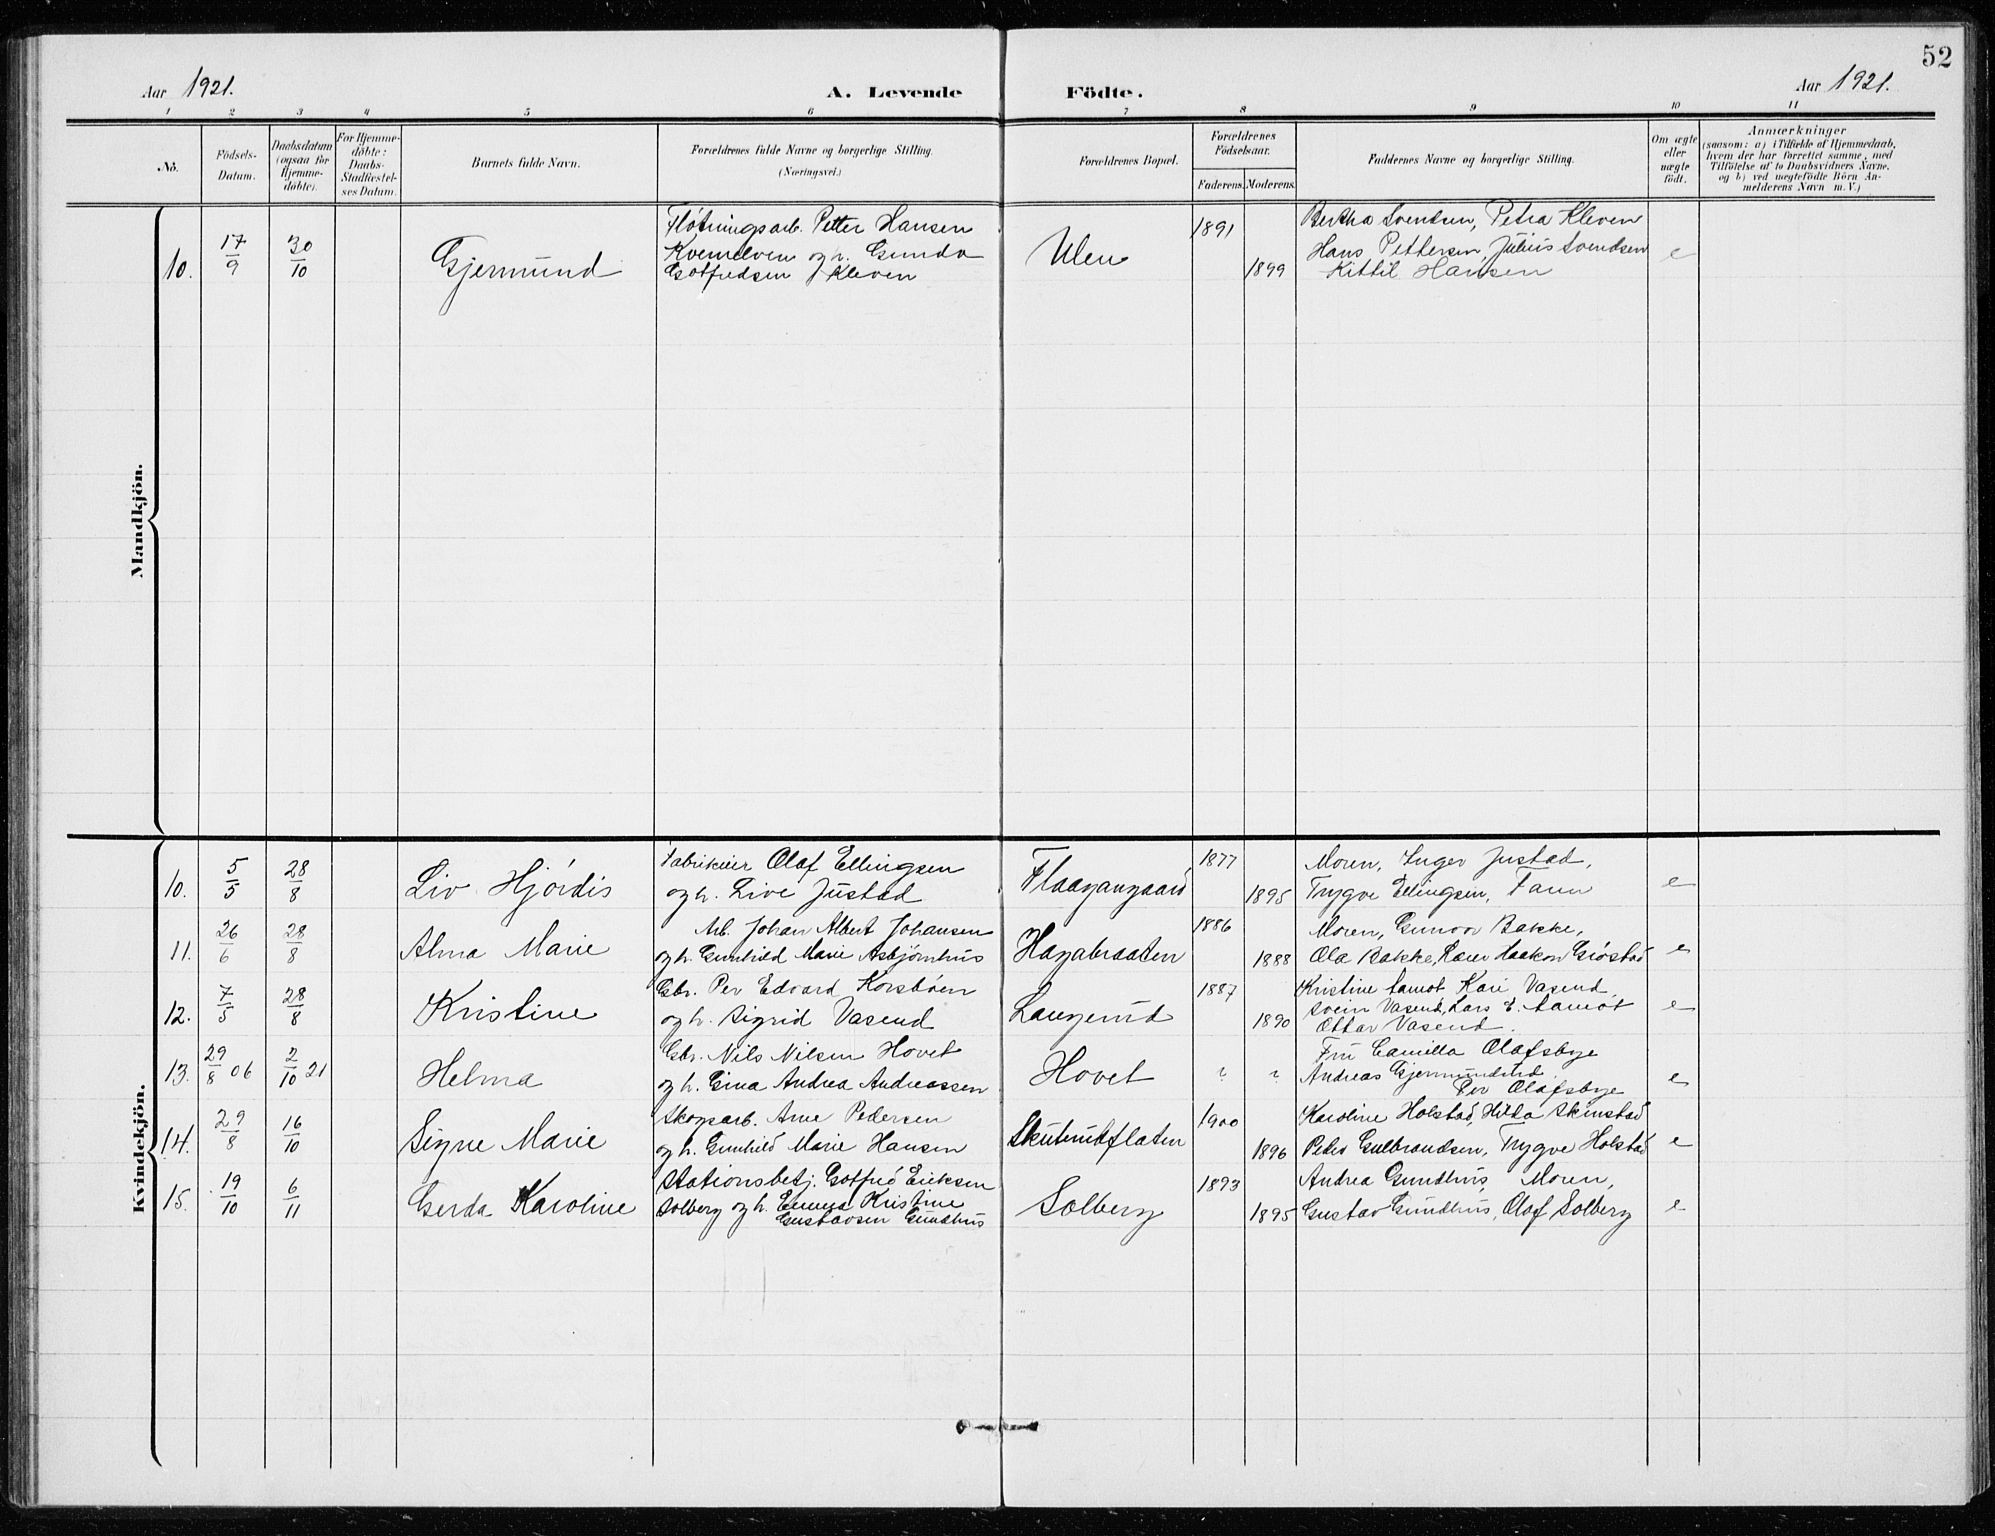 52
Aar 1921.
A. Levende Födte.
Aar 1921.
1 2 3 4 5 6 7 8 9 10 11
No.
Födsels-
Datum.
Daabsdatum
(ogsaa for
Hjemme-
döbte).
For Hjemme-
döbte:
Daabs-
Stadfæstel-
ses Datum.
Barnets fulde Navn.
Forældrenes fulde Navne og borgerlige Stilling.
(Næringsvei.)
Forældrenes Bopæl.
Forældrenes
Födselsaar.
Faderens. Moderens.
Faddernes Navne og borgerlige Stilling.
Om ægte
eller
uægte
födt.
Anmærkninger
(saasom: a) i Tilfælde af Hjemmedaab,
hvem der har forrettet samme, med
Tilföielse af to Daabsvidners Navne,
og b) ved uægtefödte Börn An-
melderens Navn m. V.)
Mandkjön.
10. 17/9 30/10 Gjermund
Fløtningsarb. Petter Hansen
Kvemelven og h. Gunda
Gotfredsen Kleven
Ulen
1891
1899
Bertha Svendsen, Petra Kleven
Hans Pettersen, Julius Svendsen
Kittil Hansen
e
Kvindekjön.
10. 5/5 28/8 Liv Hjördis
Fabrikeier Olaf Ellingsen
og h. Live Justad
Flaagangaard
1877
1895
Moren, Inger Justad,
Trygve Ellingsen, Faren
e
11. 26/6 28/8 Alma Marie
Arb. Johan Albert Johansen
og h. Gunhild Marie Asbjörnhus
Hagabraaten
1886
1888
Moren, Gunvor Bakke,
Ola Bakke, Haakon Gröstad
e
12. 7/5 28/8 Kristine
Gbr. Per Edvard Korsböen
og h. Sigrid Vasend
Langerud
1887
1890
Kristine Aamot Kari Vasend
Svein Vasend, Lars E. Aamot
Ottar Vasend.
e
13. 29/8 06 2/10 21 Helma
Gbr. Nils Nilsen Hovet
og h. Gina Andrea Andreassen
Hovet
? ?
Fru Camilla Olafsbye
Andreas Gjermundrud
Per Olafsbye
e
14. 29/8 16/10 Signe Marie
Skogsarb. Arne Pedersen
og h. Gunhild Marie Hansen
Skuterudflaten
1900
1896
Karoline Holstad, Hilda Skinstad
Peder Gulbrandsen, Trygve Holstad
e
15. 19/10 6/11 Gerda Karoline
Stationsbetj. Gotfred Eriksen
Solberg og h. Emma Kristine
Gustavsen Gundhus
Solberg
1893
1895
Andrea Gundhus, Moren,
Gustav Gundhus, Olaf Solberg
e